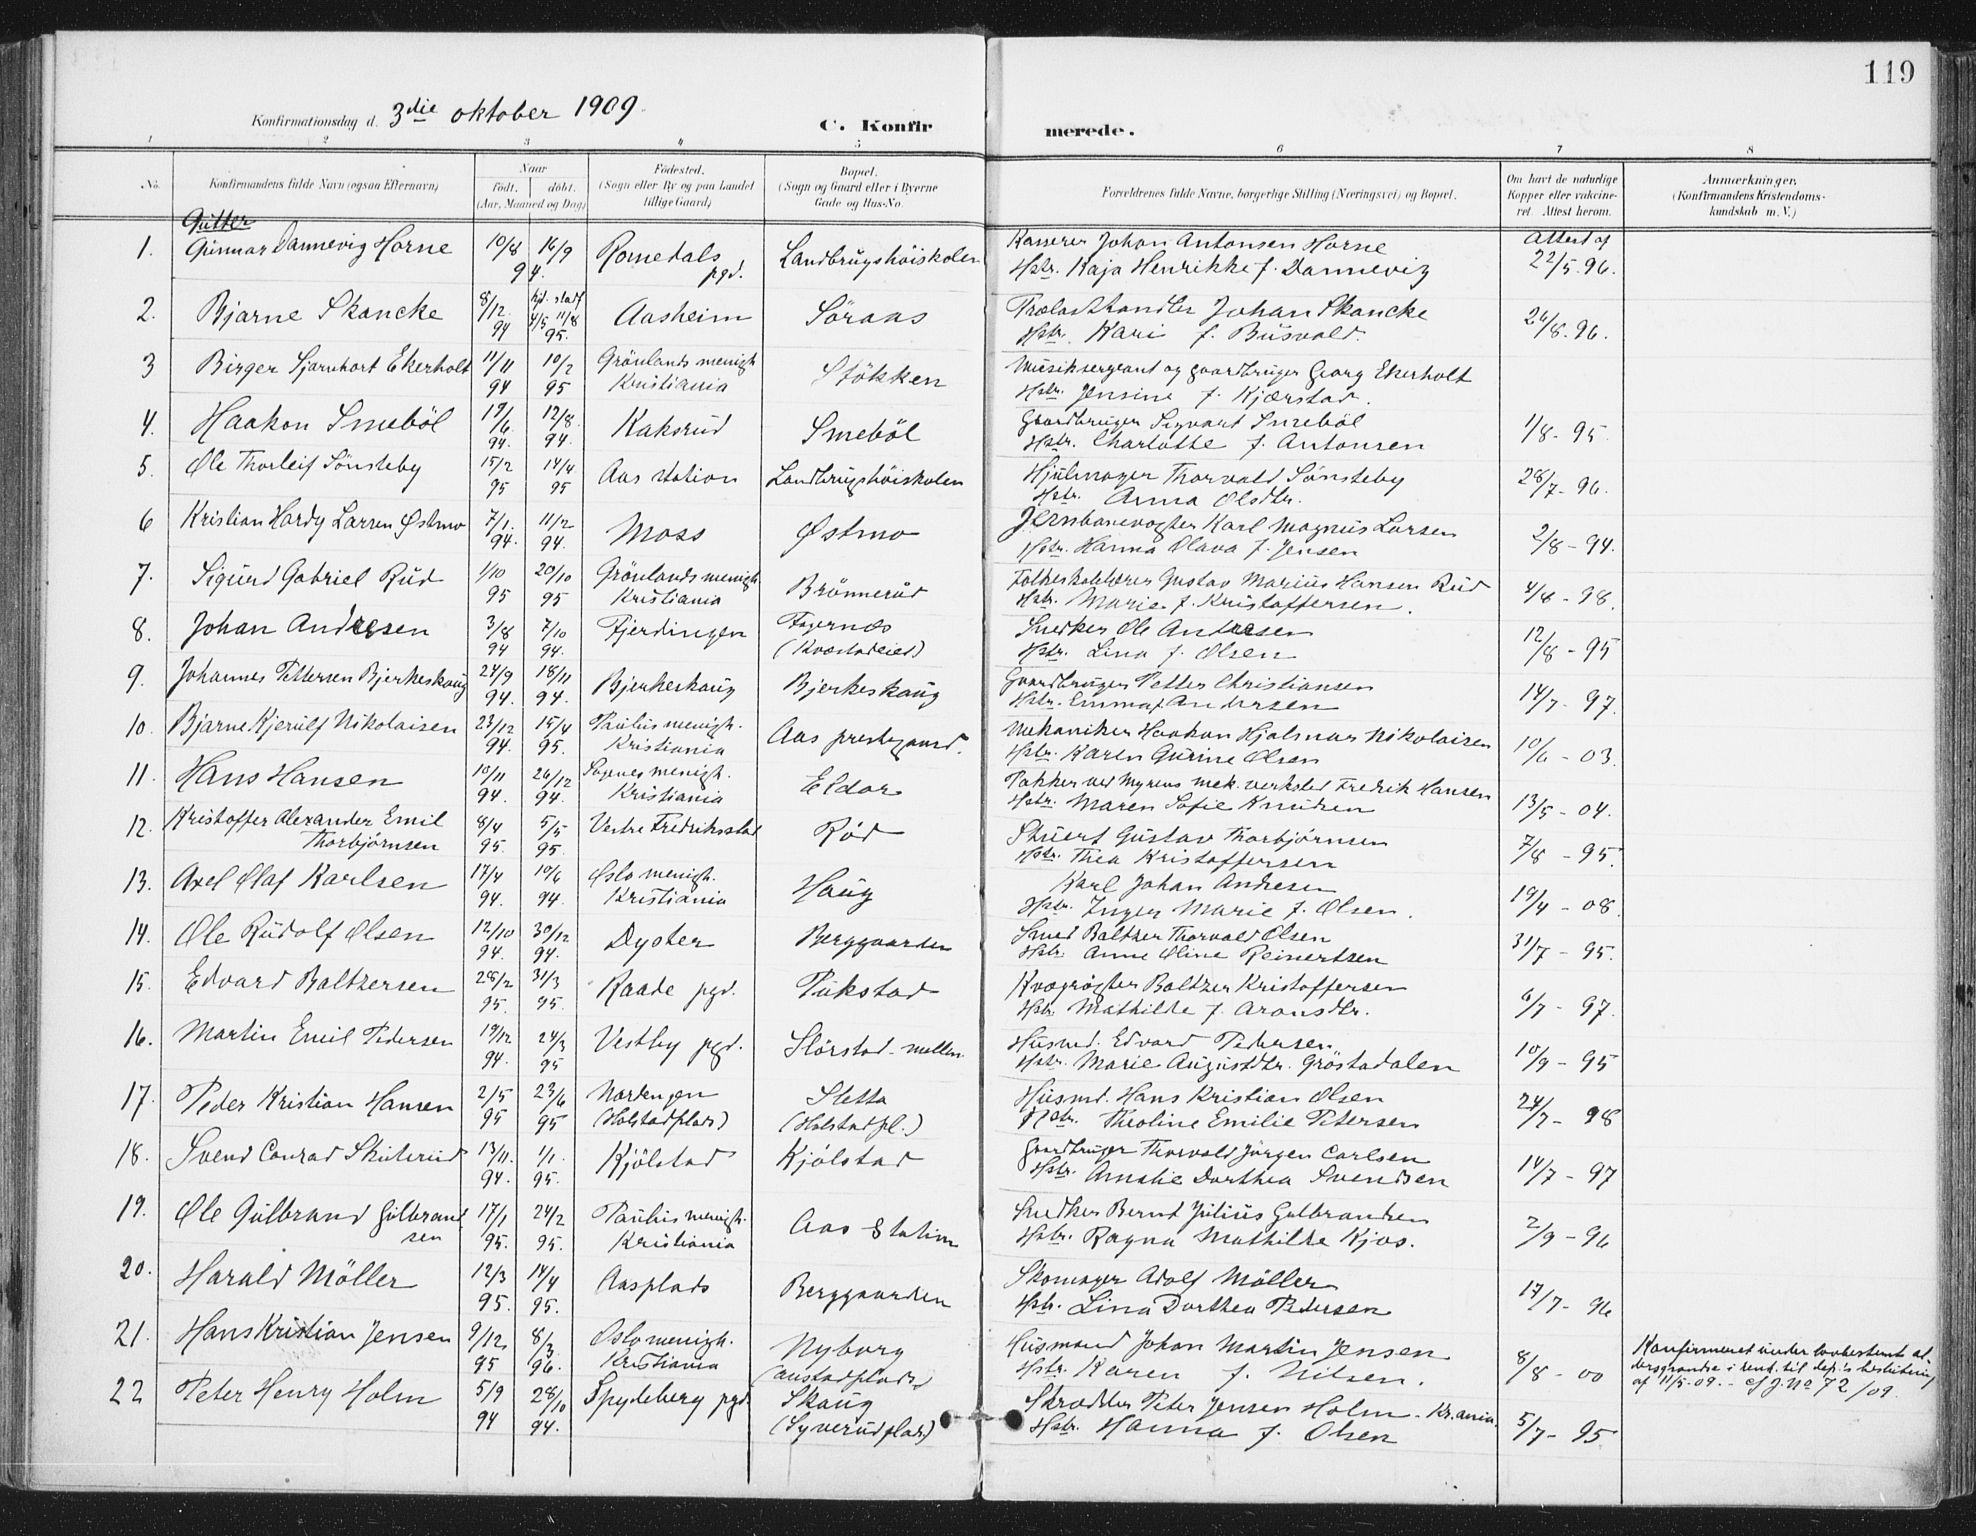 119
Konfirmationsdag d. 3die oktober 1909
C. Konfirmerede.
1 2 3 4 5 6 7 8
No. Konfirmandens fulde Navn (ogsaa Efternavn) Naar født. døbt. (Aar, Maaned og Dag) Födested. (Sogn eller By og paa Landet tillige Gaard) Bopæl. (Sogn og Gaard eller i Byerne Gade og Hus-No. Forældrenes fulde Navne, borgerlige Stilling (Næringsvei) og Bopæl. Om havt de naturlige Kopper eller vakcineret. Attest herom. Anmærkninger. (Konfirmandens Kristendomskundskab m. V.)
Gutter
1. Gunnar Dannevig Horne 10/8 16/9 94. Romedals pgd. Landbrugshöiskolen Kasserer Johan Antonsen Horne Hstr. Kaja Henrikke f. Dannevig Attest af 22/5. 96.
2. Bjarne Skancke 8/12 94 hjd. stadf 4/5 11/8 95. Aasheim Söraas Trælasthandler Johan Skancke Hstr. Kari f. Busvold. 26/8. 96.
3 Birger Bjarnhart Ekerholt 11/11 94 10/2 95 Grönlands menigh Kristiania Stökken Musiksergeant og gaardbruger Georg Ekerholt Hstr. Jensine f. Kjærstad.
4. Haakon Smeböl 19/6 94. 12/8. 94. Kaksrud Smeböl Gaardbruger Sigvart Smeböl Hstr. Charlotte f. Antonsen 1/8 - 95.
5. Ole Thorleif Sönsteby 15/2 95 14/4 95 Aas station Landbrugshöiskolen Hjulmager Thorvald Sönsteby Hstr. Anna Olsdtr. 28/7 - 96.
6 Kristian Hardy Larsen Østmo 7/1. 94. 11/2 94. Moss Østmo Jernbanevogter Karl Magnus Larsen Hstr. Hanna Olava f. Jensen 2/8 - 94.
7. Sigurd Gabriel Rud 1/10 95 20/10 95 Grönlands menigh. Kristiania Brönnerud Folkeskolelærer Gustav Marius Hansen Rud Hstr. Marie f. Kristoffersen. 4/8 - 98.
8. Johan Andresen 3/8 94 7/10 94. Fjerdingen Fagernæs (Kvestadeiet) Snedker Ole Andresen Hstr. Lina f. Olsen 12/8 - 95
9. Johannes Pettersen Bjerkeskaug 24/9 94. 18/11 94. Bjerkeskaug Bjerkeskaug Gaardbruger Petter Christiansen Hstr. Emma f. Andersen 14/7 - 97.
10. Bjarne Kjerulf Nikolaisen 23/12 94. 15/4 95. Paulus menigh. Kristiania Aas prestegaard. Mekaniker Haakon Hjalmar Nikolaisen Hstr. Karen Gurine Olsen 10/6 - 03.
11. Hans Hansen 10/11 94. 26/12 94. Sagenes menigh. Kristiania Eldor Pakker ved Myrens mek. verksted Fredrik Hansen Hstr. Maren Sofie Knudsen 13/5 - 04.
12. Kristoffer Alexander Emil Thorbjörnsen 8/4 95. 5/5 95. Vestre Fredriksstad Röd Skuert Gustav Thorbjörnsen Hstr. Thea Kristoffersen 7/8 - 95.
13. Axel Olaf Karlsen 17/4 94. 10/6 94. Oslo menigh. Kristiania Haug Karl Johan Andresen Hstr. Inger Marie f. Olsen. 19/4 - 08.
14. Ole Rudolf Olsen 12/10 94. 30/12 94. Dyster Berggaarden Smed Baltzer Thorvald Olsen Hstr. Anne Oline Reinertsen 31/7 - 95.
15. Edvard Baltzersen 28/2 95. 31/3 95. Raade pgd. Pukstad Kvægrögter Baltzer Kristoffersen Hstr. Mathilde f. Aronsdtr. 6/7 - 97.
16. Martin Emil Pedersen 19/12 94. 24/3 95 Vestby pgd. Störstad-mellem Husmd. Edvard Pedersen Hstr. Marie Augustdtr. Gröstadalen 10/9 - 95
17. Peder Kristian Hansen 2/5 95 23/6 95 Nordengen (Holstadplads) Sletta (Holstadpl.) Husmd. Hans Kristian Olsen Hstr. Theoline Emilie Petersen 24/7 - 98
18. Svend Conrad Skuterud 13/11. 94. 1/1. 95. Kjölstad Kjölstad Gaardbruger Thorvald Jörgen Carlsen Hstr. Amalie Dorthea Svendsen 14/7 - 97
19. Ole Gulbrand Gulbrandsen 17/1 95. 24/2 95. Paulus menigh. Kristiania Aas station Snedker Bernt Julius Gulbrandsen Hstr. Ragna Mathilde Kjos. 2/9 - 96
20. Harald Möller 12/3 95. 14/4 95. Aasplads Berggaarden Skomager Adolf Möller Hstr. Lina Dorthea Pedersen 17/7 - 96
21. Hans Kristian Jensen 9/12 95 8/3 96. Oslo menigh. Kristiania Nyborg (austadplads) Husmand Johan Martin Jensen Hstr. Karen f. Nilsen. 8/8 - 00 Konfirmeret under lovbestemt aldersgrændse i henh. til dep.'s beslutning af 11/5-09. - cf J. No 72/09.
22 Peter Henry Holm 5/9 94 28/10 94. Spydeberg pgd Skaug (Syverudplads) Skrædder Peter Jensen Holm - Kr.ania. Hstr. Hanna f. Olsen 5/7 - 95